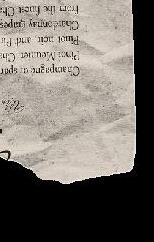 Champagne or spar
Pinot Meunier Char
Pinot noir and Pi
Chardonnay grapes
from the finest Cha